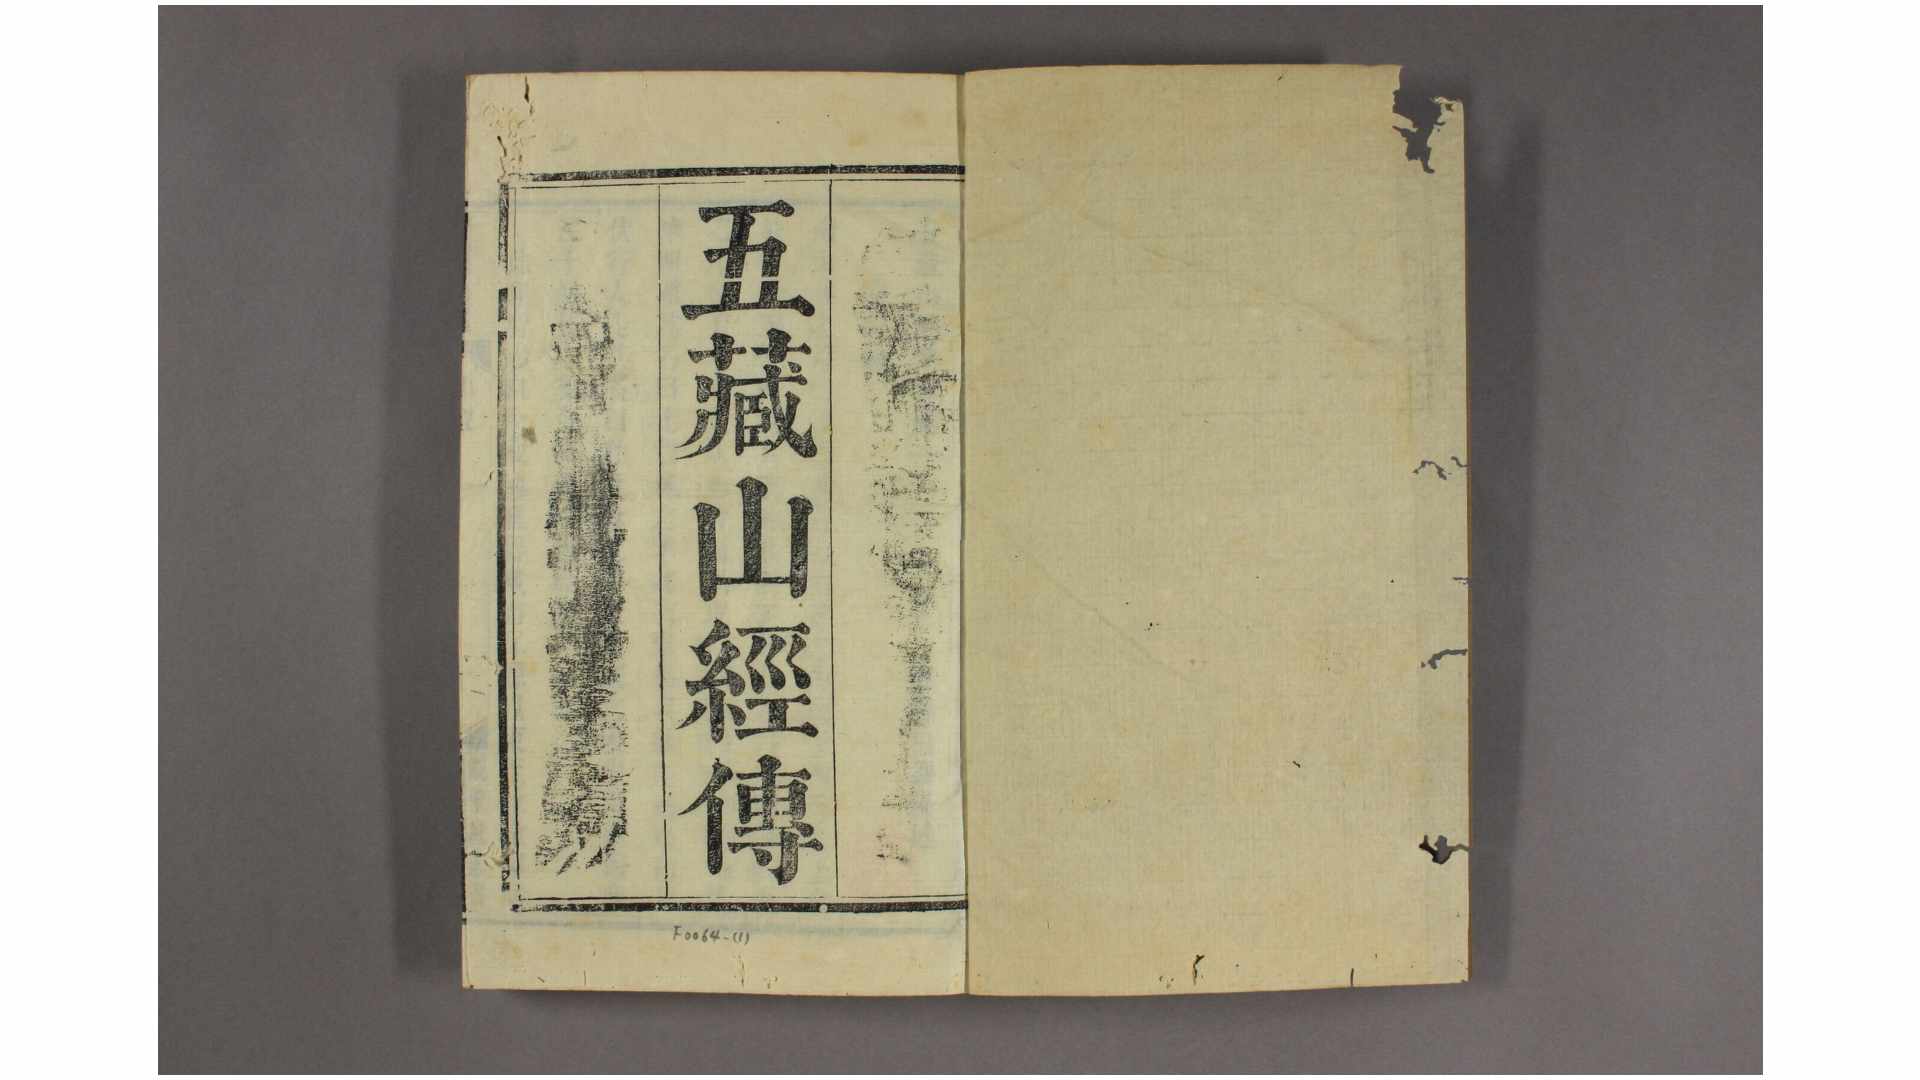 五藏山經傳
F0064-(1)